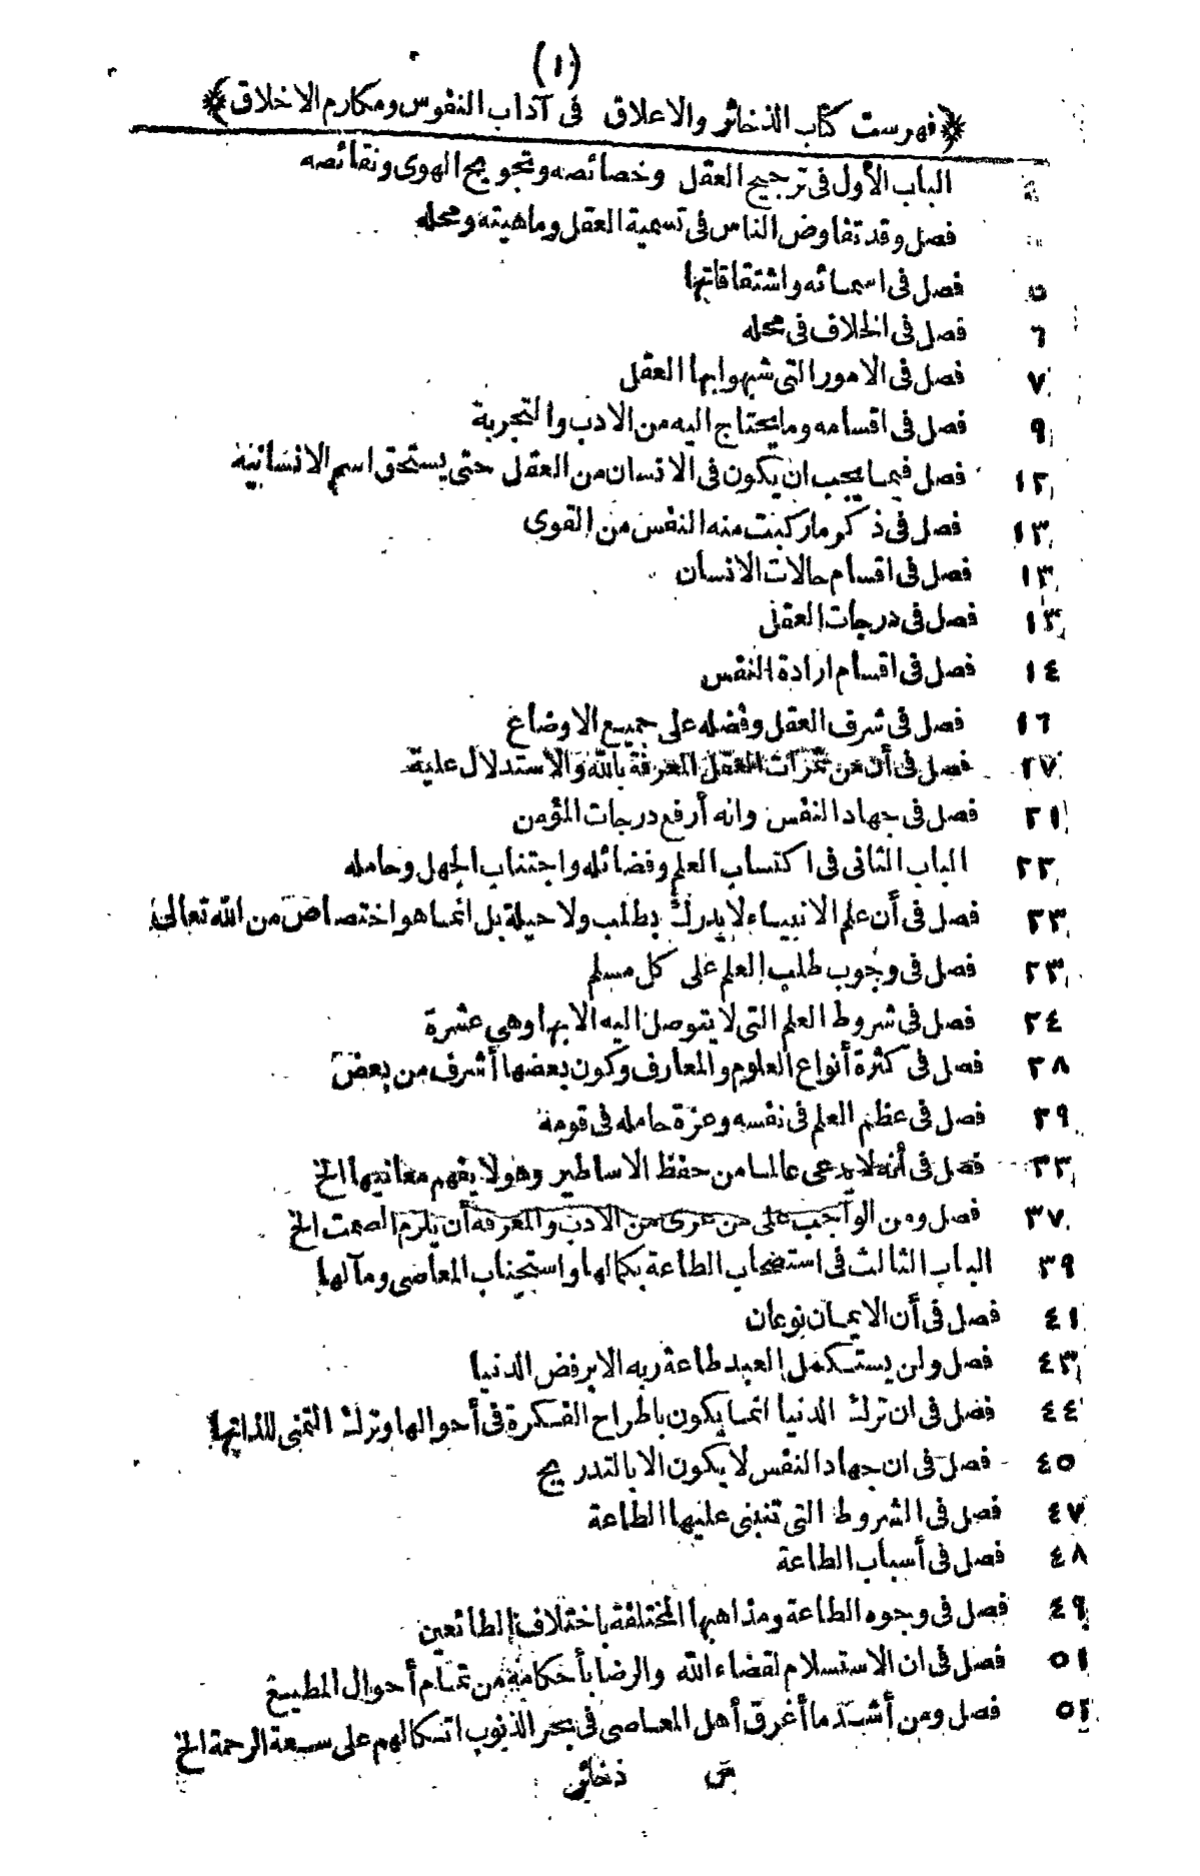 (١)
﴿فهرست كتاب الذخائر والاعلاق فى آداب النفوس ومكارم الاخلاق﴾
الباب الأول فى ترجيح العقل وخصائصه وتجويح الهوى ونقائصه
فصل وقد تفاوض الناس فى تسمية العقل وماهيته ومحله
٥ فصل فى اسمائه واشتقاقاتها
٦ فصل فى الخلاف فى محله
٧ فصل فى الامور التى شبهوا بها العقل
٩ فصل فى اقسامه وما يحتاج اليه من الادب والتجربة
١٢ فصل فيما يجب ان يكون فى الانسان من العقل حتى يستحق اسم الانسانية
١٣ فصل فى ذكر ما ركبت منه النفس من القوى
١٣ فصل فى اقسام حالات الانسان
١٣ فصل فى درجات العقل
١٤ فصل فى اقسام ارادة النفس
١٦ فصل فى شرف العقل وفضله على جميع الاوضاع
٢٧ فصل فى أن من ثمرات العقل المعرفة بالله والاستدلال عليه
٢١ فصل فى جهاد النفس وانه أرفع درجات المؤمن
٢٢ الباب الثانى فى اكتساب العلم وفضائله واجتناب الجهل وحامله
٢٣ فصل فى أن علم الانبياء لا يدرك بطلب ولا حيلة بل انما هو اختصاص من الله تعالى
٢٣ فصل فى وجوب طلب العلم على كل مسلم
٢٤ فصل فى شروط العلم التى لا يتوصل اليه الا بها وهى عشرة
٢٨ فصل فى كثرة أنواع العلوم والمعارف وكون بعضها أشرف من بعض
٢٩ فصل فى عظم العلم فى نفسه وعزة حامله فى قومه
٣٣ فصل فى أنه لا يدعى عالما من حفظ الاساطير وهو لا يفهم معانيها الخ
٣٧ فصل ومن الواجب على من عرى من الادب والمعرفة أن يلزم الصمت الخ
٣٩ الباب الثالث فى استصحاب الطاعة بكمالها واستجناب المعاصى ومآلها
٤١ فصل فى أن الايمان نوعان
٤٣ فصل ولن يستكمل العبد طاعة ربه الا برفض الدنيا
٤٤ فصل فى ان ترك الدنيا انما يكون باطراح الفكرة فى أحوالها وترك التمنى للذاتها
٤٥ فصل فى ان جهاد النفس لا يكون الا بالتدريج
٤٧ فصل فى الشروط التى تنبنى عليها الطاعة
٤٨ فصل فى أسباب الطاعة
٤٩ فصل فى وجوه الطاعة ومذاهبها المختلفة باختلاف الطائعين
٥١ فصل فى ان الاستسلام لقضاء الله والرضا بأحكامه من تمام أحوال المطيع
٥٢ فصل ومن أشد ما أغرق أهل المعاصى فى بحر الذنوب اتكالهم على سعة الرحمة الخ
ذخائر